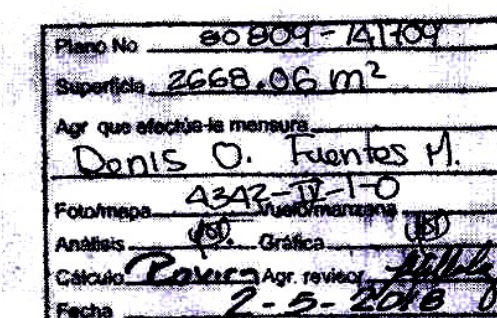 Plano No 80809-141709
Superficie 2668.06 m²
Agr que efectúa la mensura
Denis O. Fuentes M.
Foto/mapa 4342-IV-1-0 Vuelo/manzana
Análisis Gráfica
Cálculo Agr. revisor
Fecha 2-5-2018